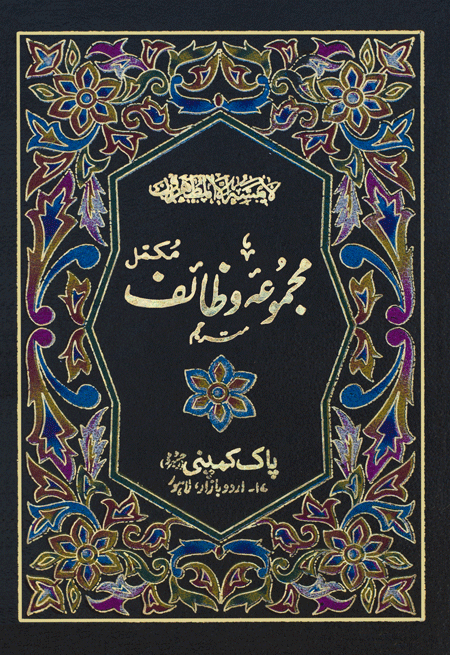 لا يمسه إلا المطهرون
مکمل
مجموعۂ وظائف
مترجم
پاک کمپنی (رجسٹرڈ)
۱۷۔ اردو بازار، لاہور